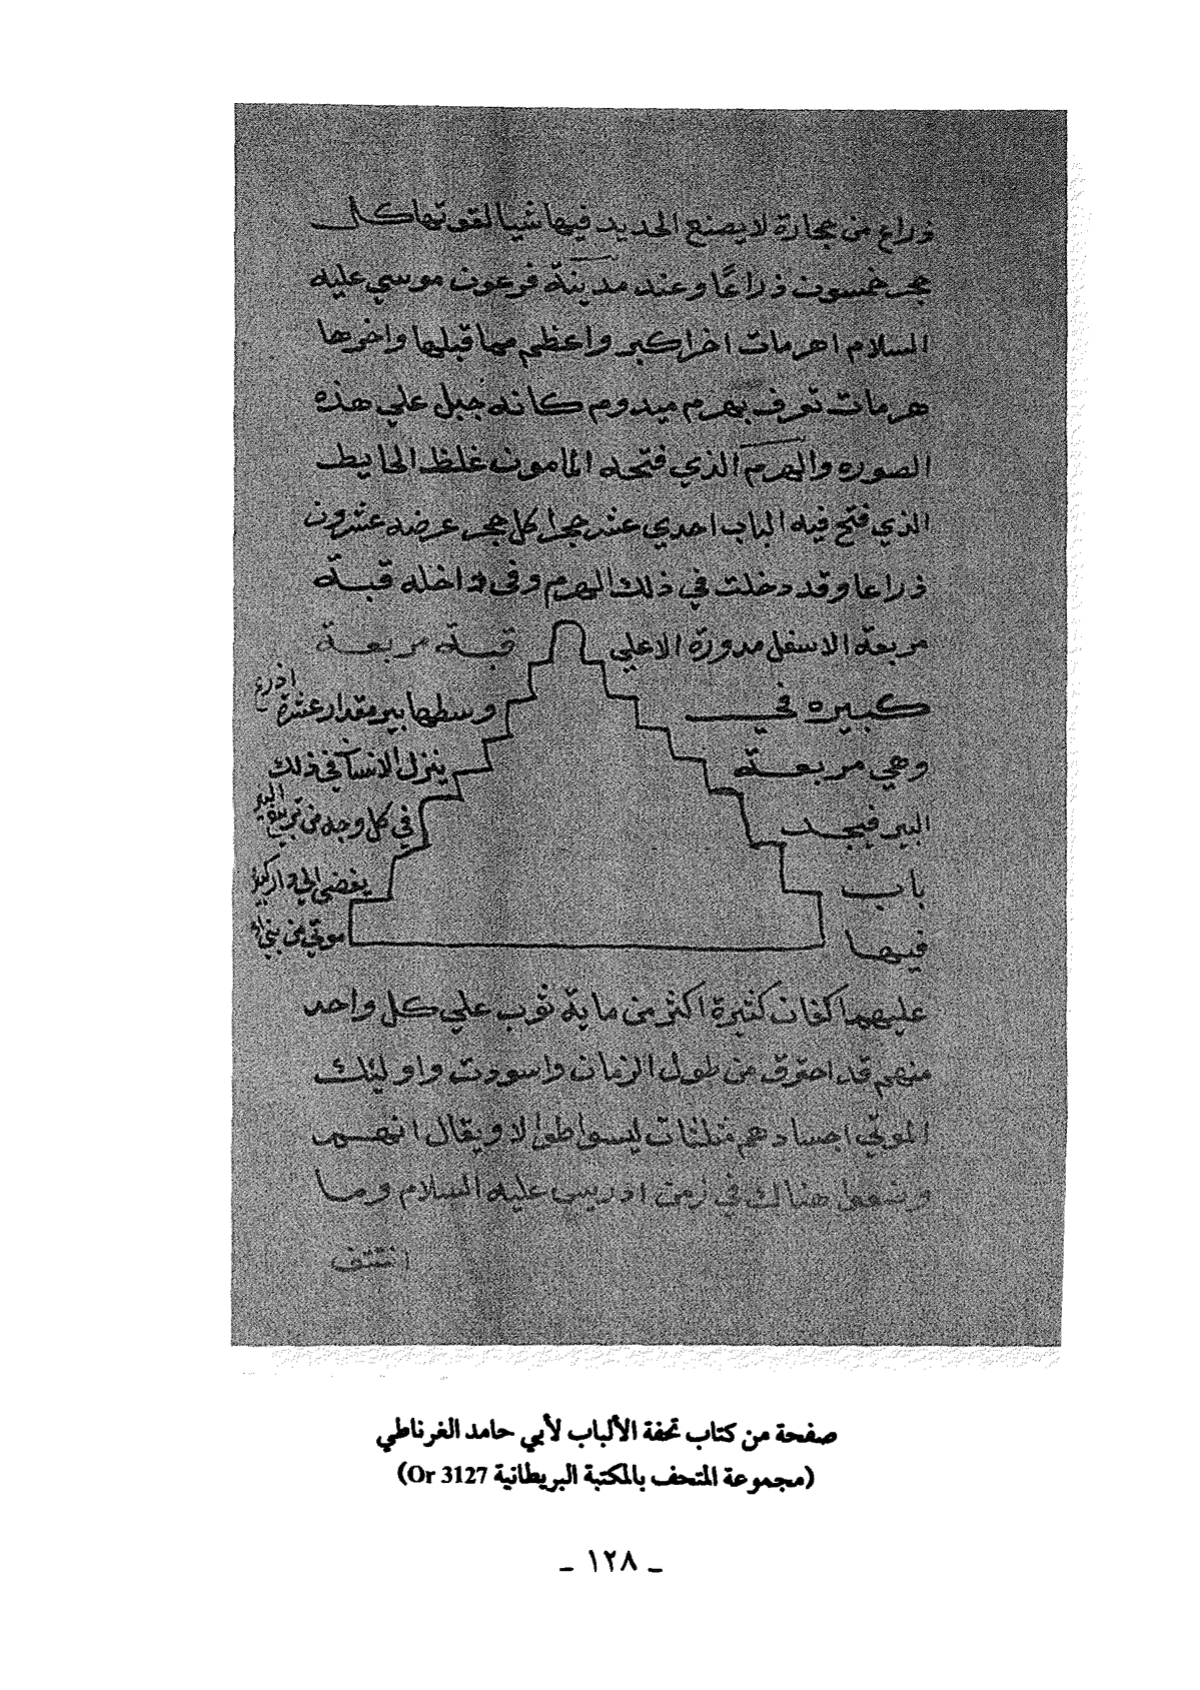 ذراع من حجارة لا يصنع الحديد فيها شيا لقوتها كل
حجر خمسون ذراعًا وعند مدينة فرعون موسي عليه
السلام اهرمات اخر اكبر واعظم مما قبلها واخرها
هرمات تعرف بهرم ميدوم كانه جبل علي هذه
الصوره والهرم الذي فتحه المامون غلظ الحايط
الذي فتح فيه الباب احدي عشر حجرا كل حجر عرضه عشرون
ذراعا وقد دخلت في ذلك الهرم وفي داخله قبة
مربعة الاسفل مدورة الاعلي قبة مربعة
كبيره في وسطها بير مقدار عشرة اذرع
وهي مربعة ينزل الانسان في ذلك
البير فيجد في كل وجه من تربيع البير
باب يفضي الي دار كبيرة
فيها موتي من بني
عليهما كفان كثيرة اكثر من ماية ثوب علي كل واحد
منهم قد احترق من طول الزمان واسودت واوليئك
الموتي اجسادهم مثلثات ليسوا طوالا ويقال انهم
وضعوا هناك في زمن ادريس عليه السلام وما
انتتف
صفحة من كتاب تحفة الألباب لأبي حامد الغرناطي
(مجموعة المتحف بالمكتبة البريطانية Or 3127)
ـ ١٢٨ ـ